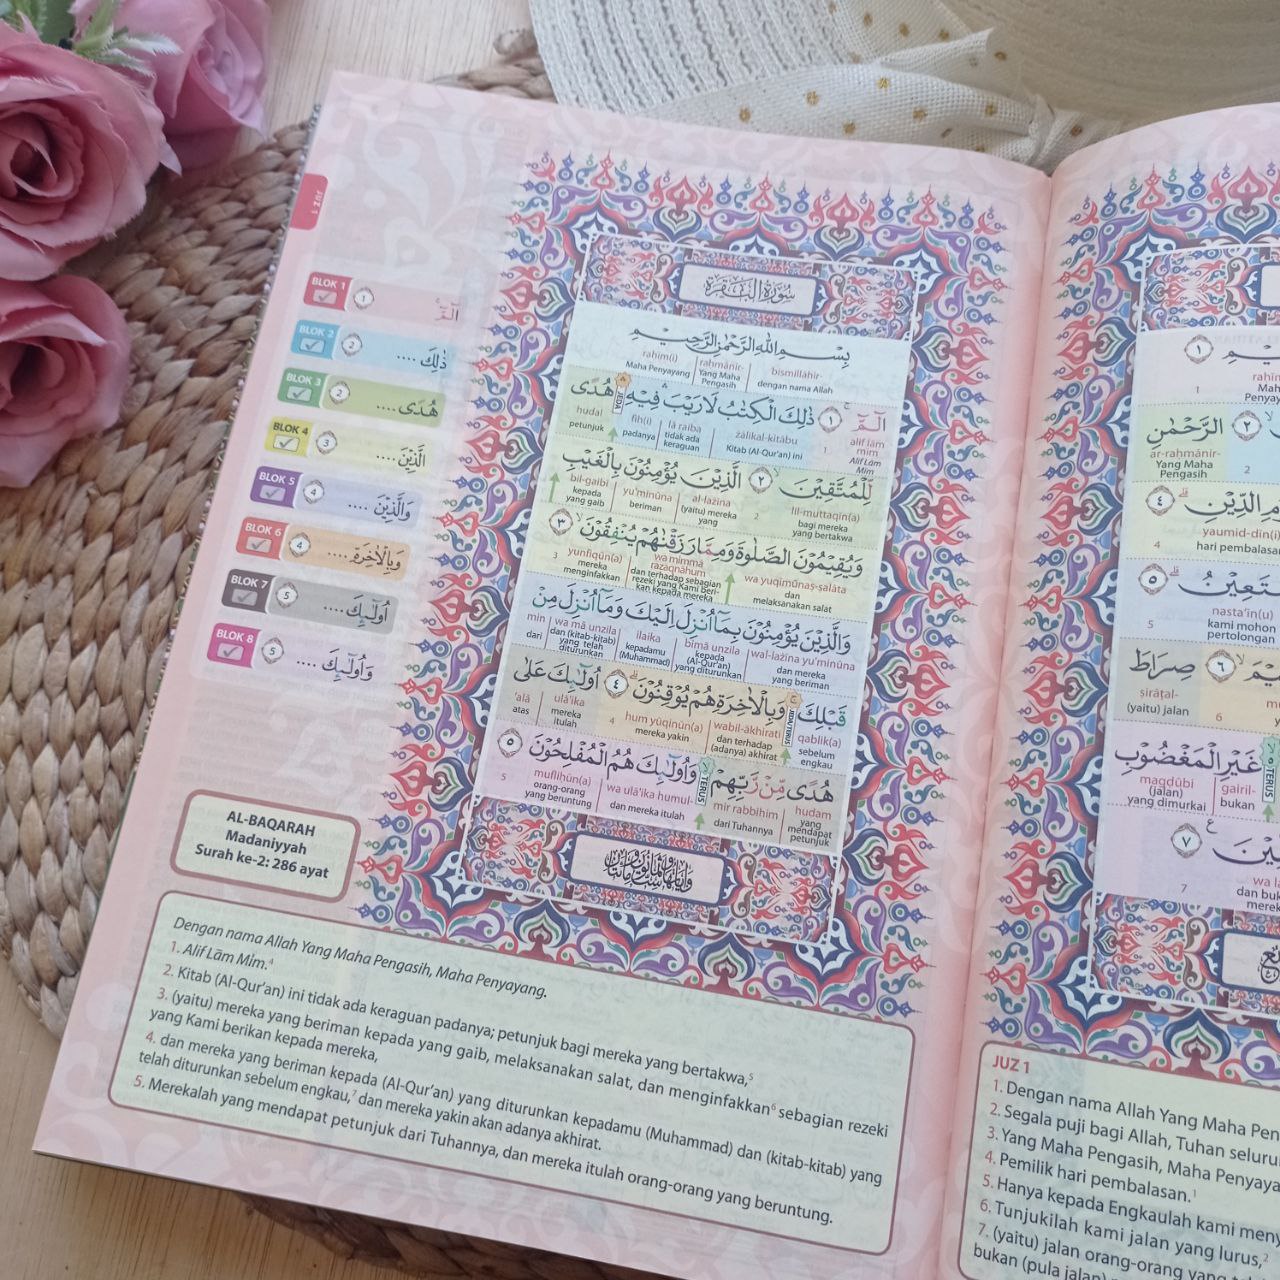 JUZ 1
BLOK 1 ١ الٓمّٓ
BLOK 2 ٢ ذٰلِكَ ....
BLOK 3 ٢ هُدًى ....
BLOK 4 ٣ الَّذِيْنَ ....
BLOK 5 ٤ وَالَّذِيْنَ ....
BLOK 6 ٤ وَبِالْاٰخِرَةِ ....
BLOK 7 ٥ اُولٰۤىِٕكَ ....
BLOK 8 ٥ وَاُولٰۤىِٕكَ ....
سُوْرَةُ الْبَقَرَةِ
بِسْمِ اللّٰهِ الرَّحْمٰنِ الرَّحِيْمِ
raḥīm(i) raḥmānir- bismillāhir-
Maha Penyayang Yang Maha Pengasih dengan nama Allah
الٓمّٓ ۚ ١ ذٰلِكَ الْكِتٰبُ لَا رَيْبَ ۛ فِيْهِ ۛ هُدًى
JEDA
hudal fīh(i) lā raiba żālikal-kitābu 1 alif lām mīm
petunjuk padanya tidak ada keraguan Kitab (Al-Qur'an) ini Alif Lām Mīm
لِّلْمُتَّقِيْنَ ۙ ٢ الَّذِيْنَ يُؤْمِنُوْنَ بِالْغَيْبِ
bil-gaibi yu'minūna al-lażīna 2 lil-muttaqīn(a)
kepada yang gaib beriman (yaitu) mereka yang bagi mereka yang bertakwa
وَيُقِيْمُوْنَ الصَّلٰوةَ وَمِمَّا رَزَقْنٰهُمْ يُنْفِقُوْنَ ۙ ٣
3 yunfiqūn(a) wa mimmā razaqnāhum wa yuqīmūnaṣ-ṣalāta
mereka menginfakkan dan terhadap sebagian rezeki yang Kami berikan kepada mereka dan melaksanakan salat
وَالَّذِيْنَ يُؤْمِنُوْنَ بِمَآ اُنْزِلَ اِلَيْكَ وَمَآ اُنْزِلَ مِنْ
min wa mā unzila ilaika bimā unzila wal-lażīna yu'minūna
dari dan (kitab-kitab) yang telah diturunkan kepadamu (Muhammad) kepada (Al-Qur'an) yang diturunkan dan mereka yang beriman
قَبْلِكَ ۚ وَبِالْاٰخِرَةِ هُمْ يُوْقِنُوْنَ ۗ ٤ اُولٰۤىِٕكَ عَلٰى
JEDA/TERUS
'alā ulā'ika 4 hum yūqinūn(a) wabil-ākhirati qablik(a)
atas mereka itulah mereka yakin dan terhadap (adanya) akhirat sebelum engkau
هُدًى مِّنْ رَّبِّهِمْ ۙ وَاُولٰۤىِٕكَ هُمُ الْمُفْلِحُوْنَ ٥
TERUS
5 mufliḥūn(a) wa ulā'ika humul- mir rabbihim hudam
orang-orang yang beruntung dan mereka itulah dari Tuhannya yang mendapat petunjuk
AL-BAQARAH
Madaniyyah
Surah ke-2: 286 ayat
Dengan nama Allah Yang Maha Pengasih, Maha Penyayang.
1. Alif Lām Mīm.4
2. Kitab (Al-Qur'an) ini tidak ada keraguan padanya; petunjuk bagi mereka yang bertakwa,5
3. (yaitu) mereka yang beriman kepada yang gaib, melaksanakan salat, dan menginfakkan6 sebagian rezeki
yang Kami berikan kepada mereka,
4. dan mereka yang beriman kepada (Al-Qur'an) yang diturunkan kepadamu (Muhammad) dan (kitab-kitab) yang
telah diturunkan sebelum engkau,7 dan mereka yakin akan adanya akhirat.
5. Merekalah yang mendapat petunjuk dari Tuhannya, dan mereka itulah orang-orang yang beruntung.
١
1
٢ الرَّحْمٰنِ
ar-raḥmānir- 2
Yang Maha Pengasih
٤ الدِّيْنِ
yaumid-dīn(i)
4 hari pembalasan
٥ نَسْتَعِيْنُ
nasta'īn(u)
5 kami mohon pertolongan
٦ صِرَاطَ
ṣirāṭal-
(yaitu) jalan 6
غَيْرِ الْمَغْضُوْبِ
TERUS
magḍūbi gairil-
(jalan) yang dimurkai bukan
٧
7
JUZ 1
1. Dengan nama Allah Yang Maha
2. Segala puji bagi Allah, Tuhan
3. Yang Maha Pengasih, Maha
4. Pemilik hari pembalasan.1
5. Hanya kepada Engkaulah kami
6. Tunjukilah kami jalan yang lurus,2
7. (yaitu) jalan orang-orang yang
bukan (pula jalan)